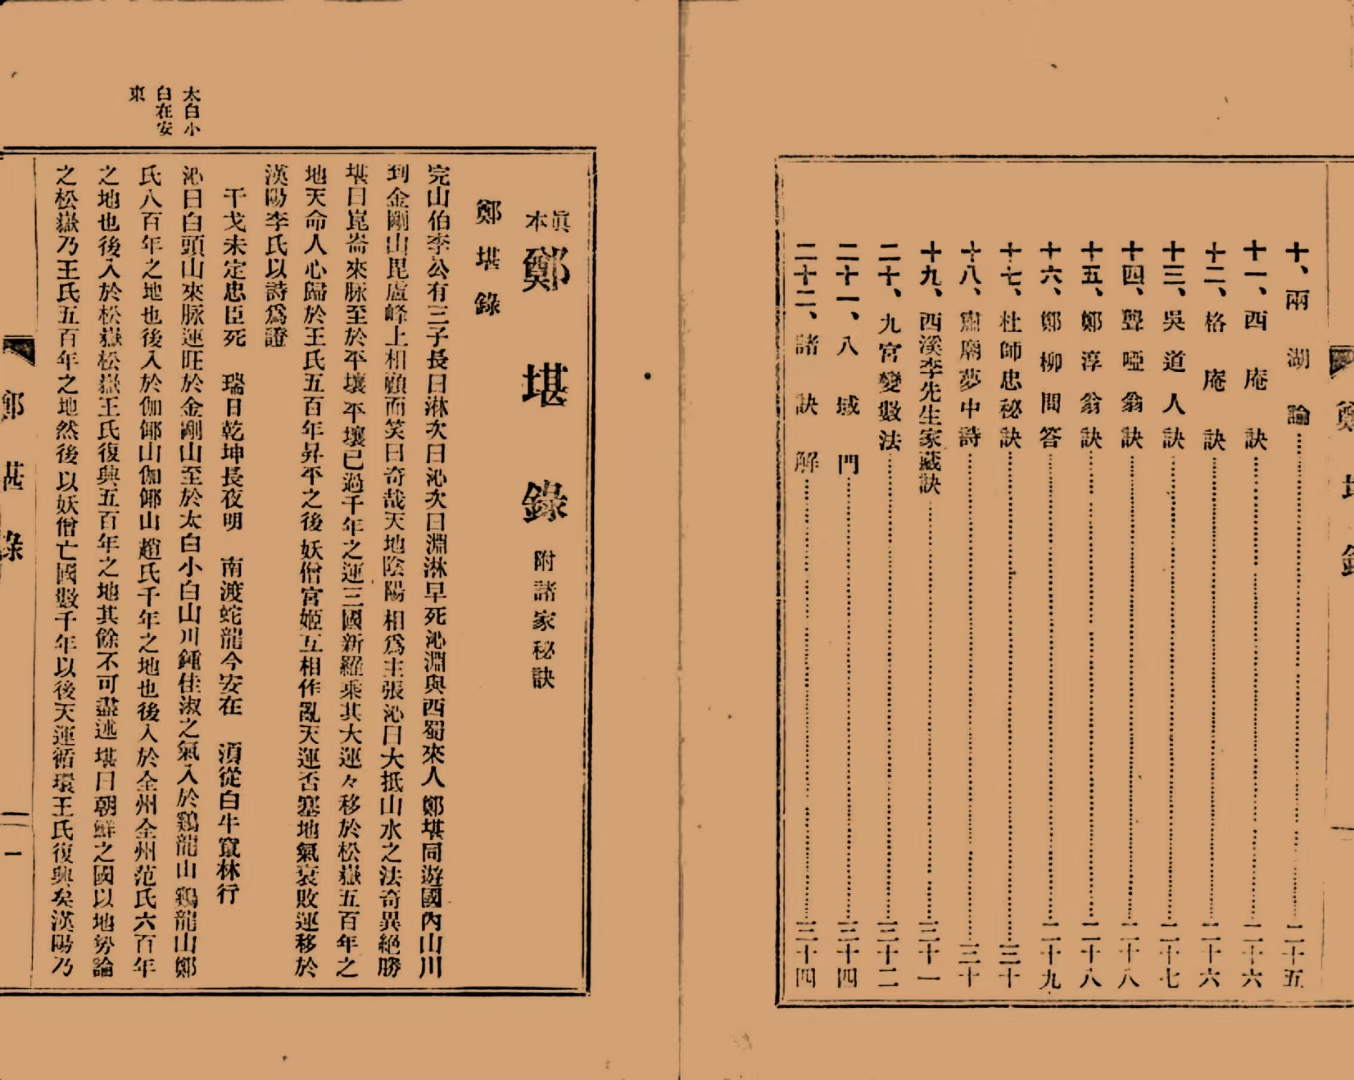 十、兩湖論 二十五
十一、西庵訣 二十六
十二、格庵訣 二十六
十三、吳道人訣 二十七
十四、聾啞翁訣 二十八
十五、鄭淳翁訣 二十八
十六、鄭柳問答 二十九
十七、杜師忠秘訣 三十
十八、肅廟夢中詩 三十
十九、西溪李先生家藏訣 三十一
二十、九宮變數法 三十二
二十一、八域門 三十四
二十二、諸訣解 三十四
眞本 鄭堪錄 附諸家秘訣
鄭堪錄
完山伯李公有三子長曰淋次曰沁次曰淵淋早死沁淵與西蜀來人鄭堪同遊國內山川
到金剛山毘盧峰上相顧而笑曰奇哉天地陰陽相爲主張沁曰大抵山水之法奇異絕勝
堪曰崑崙來脉至於平壤平壤已過千年之運三國新羅乘其大運々移於松嶽五百年之
地天命人心歸於王氏五百年昇平之後妖僧宮姬互相作亂天運否塞地氣衰敗運移於
漢陽李氏以詩爲證
干戈未定忠臣死 瑞日乾坤長夜明 南渡蛇龍今安在 須從白牛竄林行
沁曰白頭山來脉運旺於金剛山至於太白小白山川鍾佳淑之氣入於鷄龍山鷄龍山鄭
氏八百年之地也後入於伽倻山伽倻山趙氏千年之地也後入於全州全州范氏六百年
之地也後入於松嶽松嶽王氏復興五百年之地其餘不可盡述堪曰朝鮮之國以地勢論
之松嶽乃王氏五百年之地然後以妖僧亡國數千年以後天運循環王氏復興矣漢陽乃
太白小
白在安
東
鄭堪錄
一